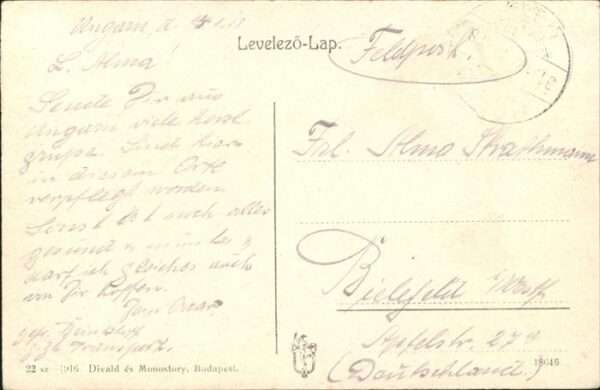 Ungarn, d.
Levelező-Lap.
Feldpost.
L. Alma!
Sende Dir aus
Ungarn viele herzl.
grüße. Sind hier
in diesem Ort
verpflegt worden.
Sonst ist auch alles
gesund u. munter,
darf ich gleiches auch
von Dir hoffen.
Dein
Transport.
Frl. Alma Strathmann
Bielefeld i/Westf.
Apfelstr. 27
(Deutschland.)
22 sz. 1916 Divald és Monostory, Budapest.
18646